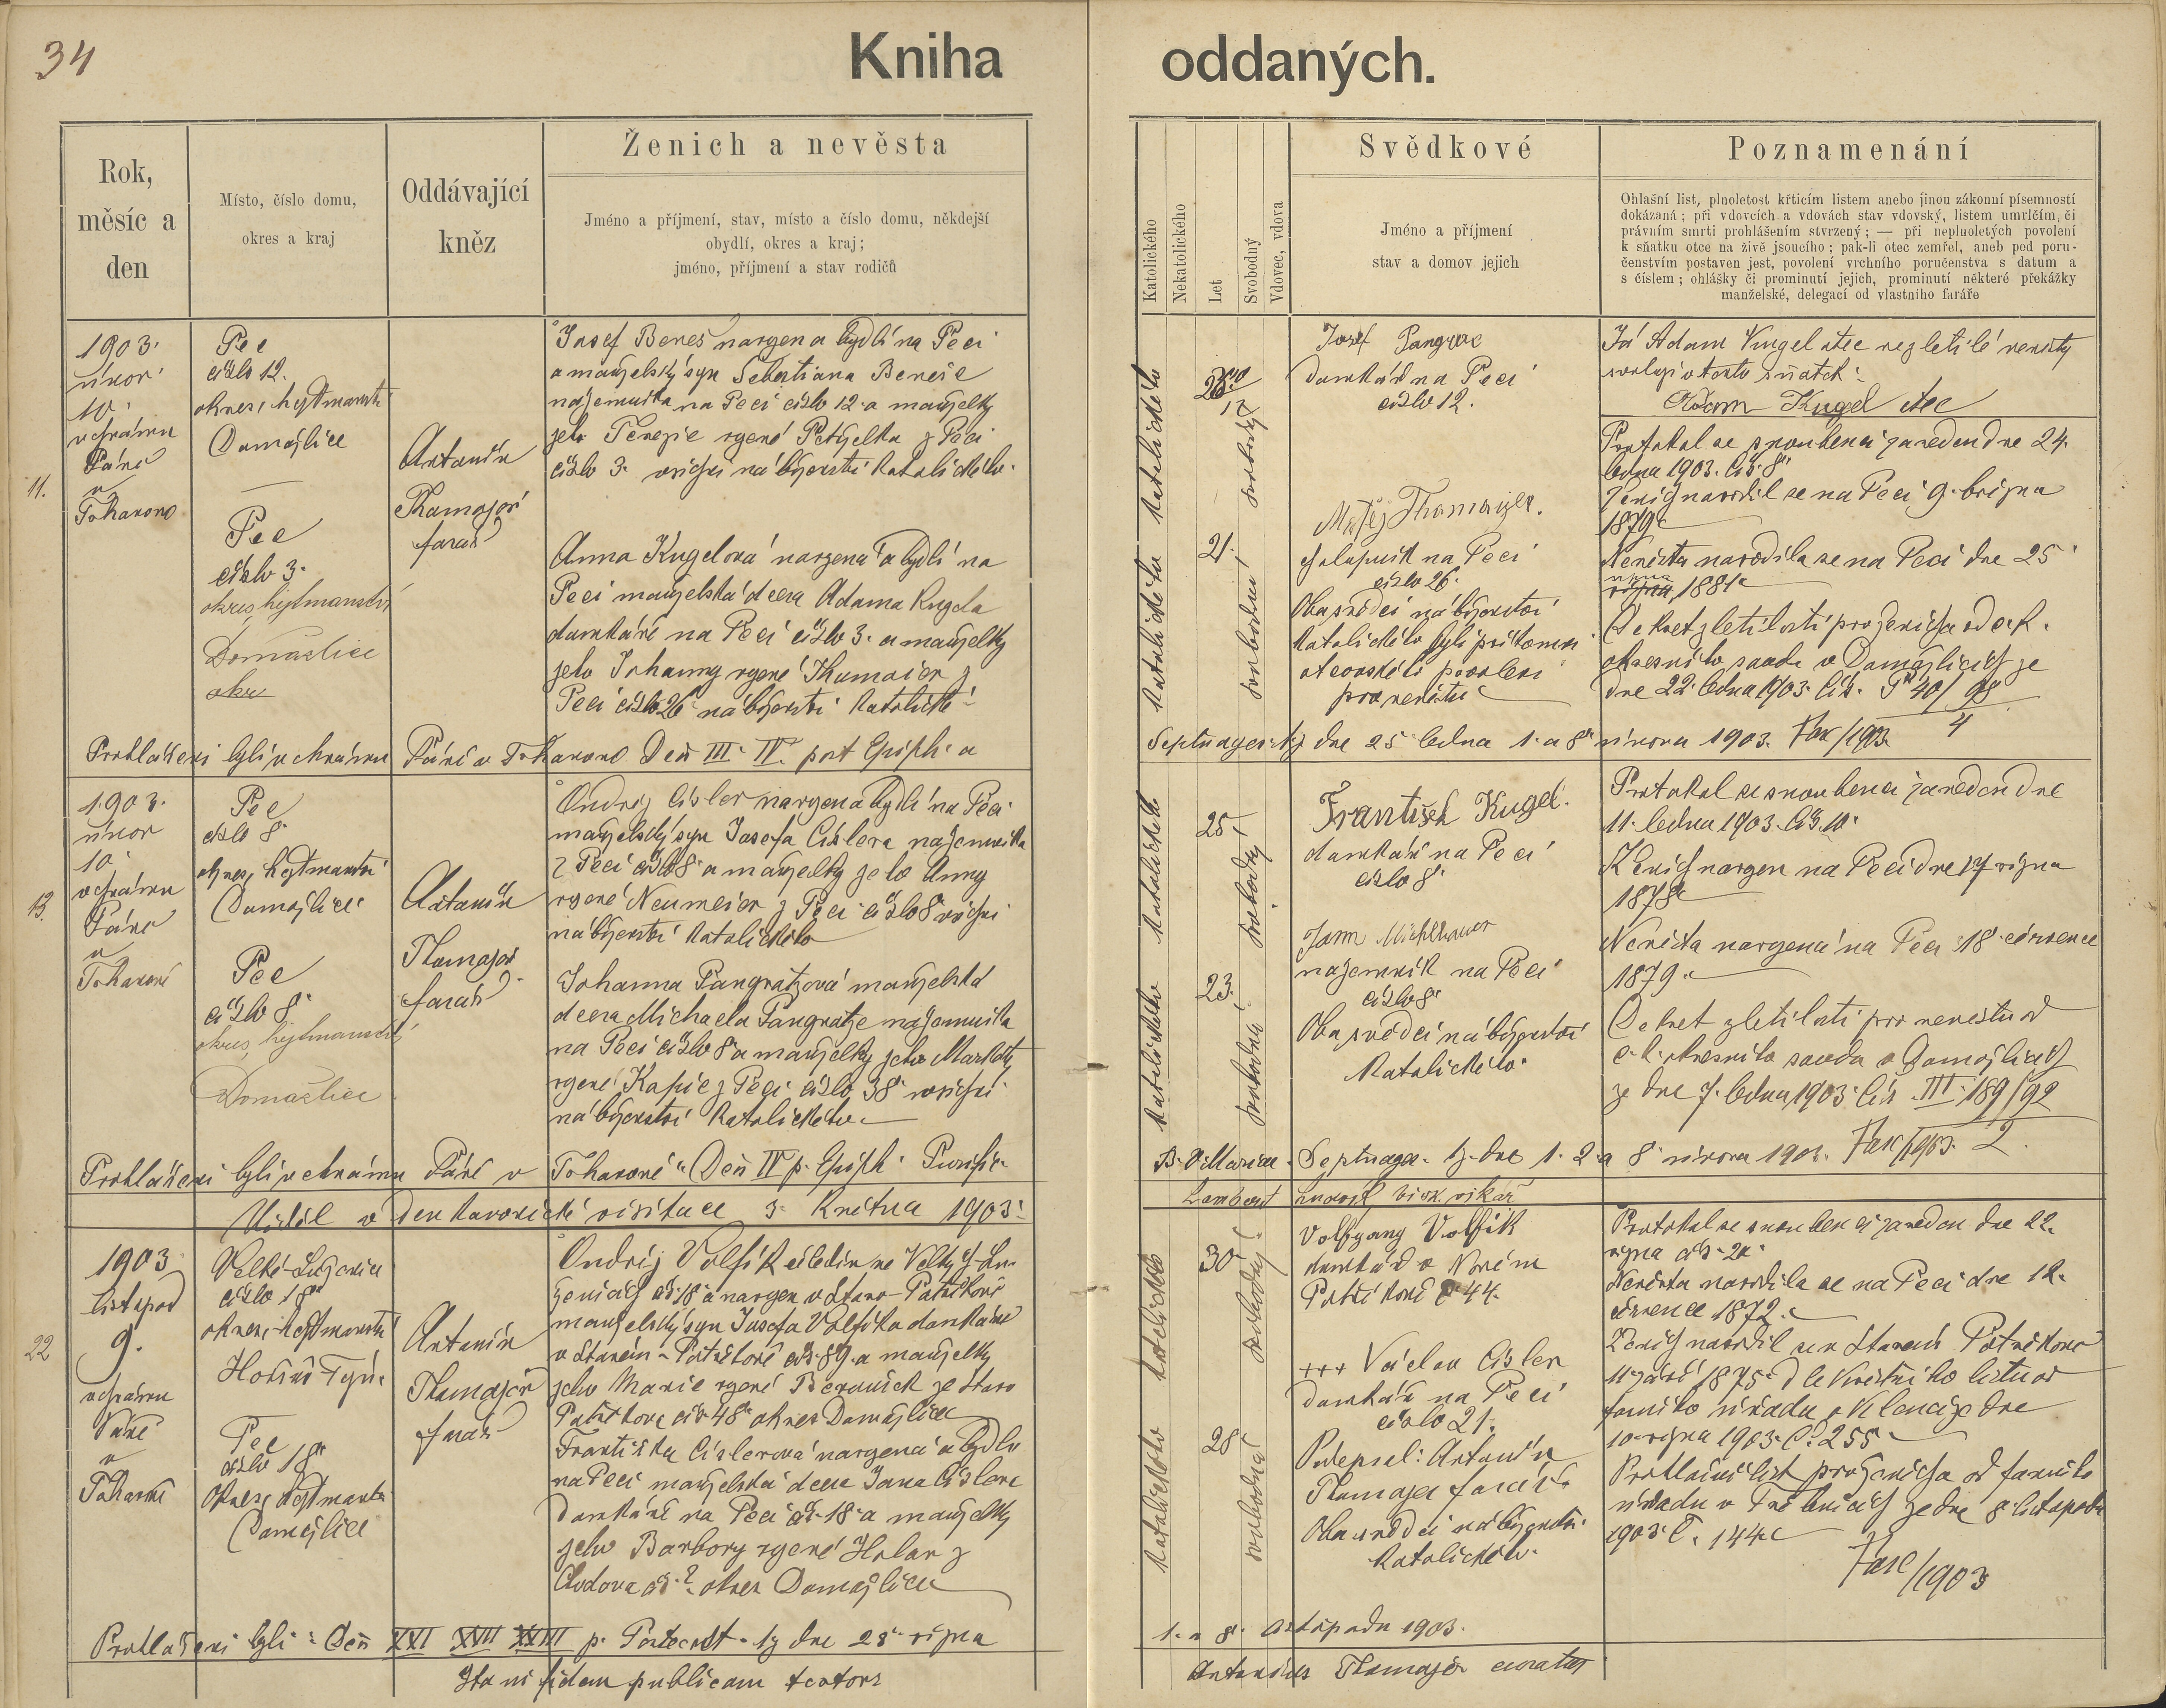 34
Kniha oddaných.
Rok,
měsíc a
den
Místo, číslo domu,
okres a kraj
Oddávající
kněz
Ženich a nevěsta
Jméno a příjmení, stav, místo a číslo domu, někdejší
obydlí, okres a kraj;
jméno, příjmení a stav rodičů
Katolického
Nekatolického
Let
Svobodný
Vdovec, vdova
Svědkové
Jméno a příjmení
stav a domov jejich
Poznamenání
Ohlašní list, plnoletost křticím listem anebo jinou zákonní písemností
dokázaná; při vdovcích a vdovách stav vdovský, listem umrlčím, či
právním smrti prohlášením stvrzený; — při neplnoletých povolení
k sňatku otce na živě jsoucího; pak-li otec zemřel, aneb pod poru-
čenstvím postaven jest, povolení vrchního poručenstva s datum a
s číslem; ohlášky či prominutí jejich, prominutí některé překážky
manželské, delegací od vlastního faráře
11.
1903.
únor
10.
v chrámu
Páně
v
Tohavono
Pec
číslo 12.
okres, hejtmanství
Domažlice
Pec
číslo 3.
okres, hejtmanství
Domažlice
okr
Antonín
Thomajer
farář
Josef Beneš narozen a bydlí na Peci
a manželský syn Sebestiana Beneše
nájemníka na Peci číslo 12. a manželky
jeho Terezie rozené Petrželka z Peci
číslo 3. všichni náboženství katolického.
Anna Kugelová narzena a bydlí na
Peci manželská dcera Adama Kugela
domkáře na Peci číslo 3. a manželky
jeho Johanny rozené Thumaier z
Peci číslo 26 náboženství katolické
Katolického
Katolického
21.
svobodný
svobodná
Josef Pangrac
Domkář na Peci
číslo 12.
Matěj Thomaijer.
chalupník na Peci
číslo 26.
Oba svědci náboženství
katolického byli přítomni
otcovskéti povolení
pro nevěstu
Já Adam Kugel otec nezletilé nevěsty
svoluji v tento sňatek:
Adam Kugel otec
Protokol se snoubenci zaveden dne 24.
ledna 1903. čís. 8.
Ženich narodil se na Peci 9. března
1879.
Nevěsta narodila se na Peci dne 25
října 1881.
Dekret zletilosti pro ženicha od c. k.
okresního soudu v Domažlicích ze
dne 22. ledna 1903. čís. P 40/98
4
Prohlášeni byli v chrámu Páně v Tohavono Den III. IV. post Epiph. a
Septuages. tj. dne 25 ledna 1. a 8. února 1903. Fasc/1903.
13.
1903.
únor
10.
v chrámu
Páně
v
Tohavoně
Pec
číslo 8.
okres, hejtmanství
Domažlice
Pec
číslo 8.
okres, hejtmanství
Domažlice
Antonín
Thomajer
farář
Ondřej Císler narzen a bydlí na Peci
manželský syn Josefa Císlera nájemníka
z Peci číslo 8. a manželky jeho Anny
rozené Neumeier z Peci číslo 8. všichni
náboženství katolického
Johanna Pangratzová manželská
dcera Michaela Pangratze nájemníka
na Peci číslo 8. a manželky jeho Markéty
rozené Kapic z Peci číslo 38. všichni
náboženství katolického
Katolického
Katolického
25.
23.
svobodný
svobodná
František Kugel.
domkář na Peci
číslo 8.
Jann Michlbauer
nájemník na Peci
číslo 8.
Oba svědci náboženství
katolického.
Protokol se snoubenci zaveden dne
11. ledna 1903. čís. 10.
Ženich narzen na Peci dne 17 října
1878.
Nevěsta narzena na Peci 18. července
1879.
Dekret zletilosti pro nevěstu od
c. k. okresního soudu v Domažlicích
ze dne 7. ledna 1903. čís. III. 189/92
2.
Prohlášeni byli v chrámu Páně v Tohavoně. Den IV p. Epiph. Purific.
B. V. Mariae. Septuages. tj. dne 1. 2. a 8. února 1903. Fasc/1903.
Viděl v den kanonické visitace 5. května 1903.
22
1903
listopad
9.
v chrámu
Páně
v
Tohavoně
číslo 18.
okres, hejtmanství
Horšův Týn.
Pec
číslo 18.
okres, hejtmanství
Domažlice
Antonín
Thomajer
farář
Ondřej Volfík čeledín ve Velkých Lu-
ženicích čís. 18 a narzen v Staro-Postřekově
manželský syn Josefa Volfíka domkáře
v Starém-Postřekově čís. 89. a manželky
jeho Marie rozené Beranick ze Staro
Postřekova čís. 48. okres Domažlice
Františka Císlerová narzena a bydlí
na Peci manželská dcera Jana Císlera
Domkáře na Peci čís. 18. a manželky
jeho Barbory rozené Holar z
Chodova čís. 2 okres Domažlice
Katolického
Katolického
30.
28.
svobodný
svobodná
Volfgang Volfík
domkář v Novém
Postřekově č. 44.
+++ Václav Cisler
Domkář na Peci
číslo 21.
Podepsal: Antonín
Thomajer farář
Oba svědci náboženství
katolického.
Protokol se snoubenci zaveden dne 22.
října
Nevěsta narodila se na Peci dne 12.
července 1872.
Ženich narodil se v Starém Postřekově
11 září 1875. dle křestního listu od
farního úřadu v Klenčí ze dne
10. října 1903. č. 255
Prohlašní list pro ženicha od farního
úřadu v ze dne 8. listopadu
1903. č. 144.
Fasc/1903
Prohlášeni byli: Den XXI XXII XXIII p. Pentecost. tj. dne 25. října
1. a 8. listopadu 1903.
Ita ni fidem publicam testor
Antonius Thomajer curatus